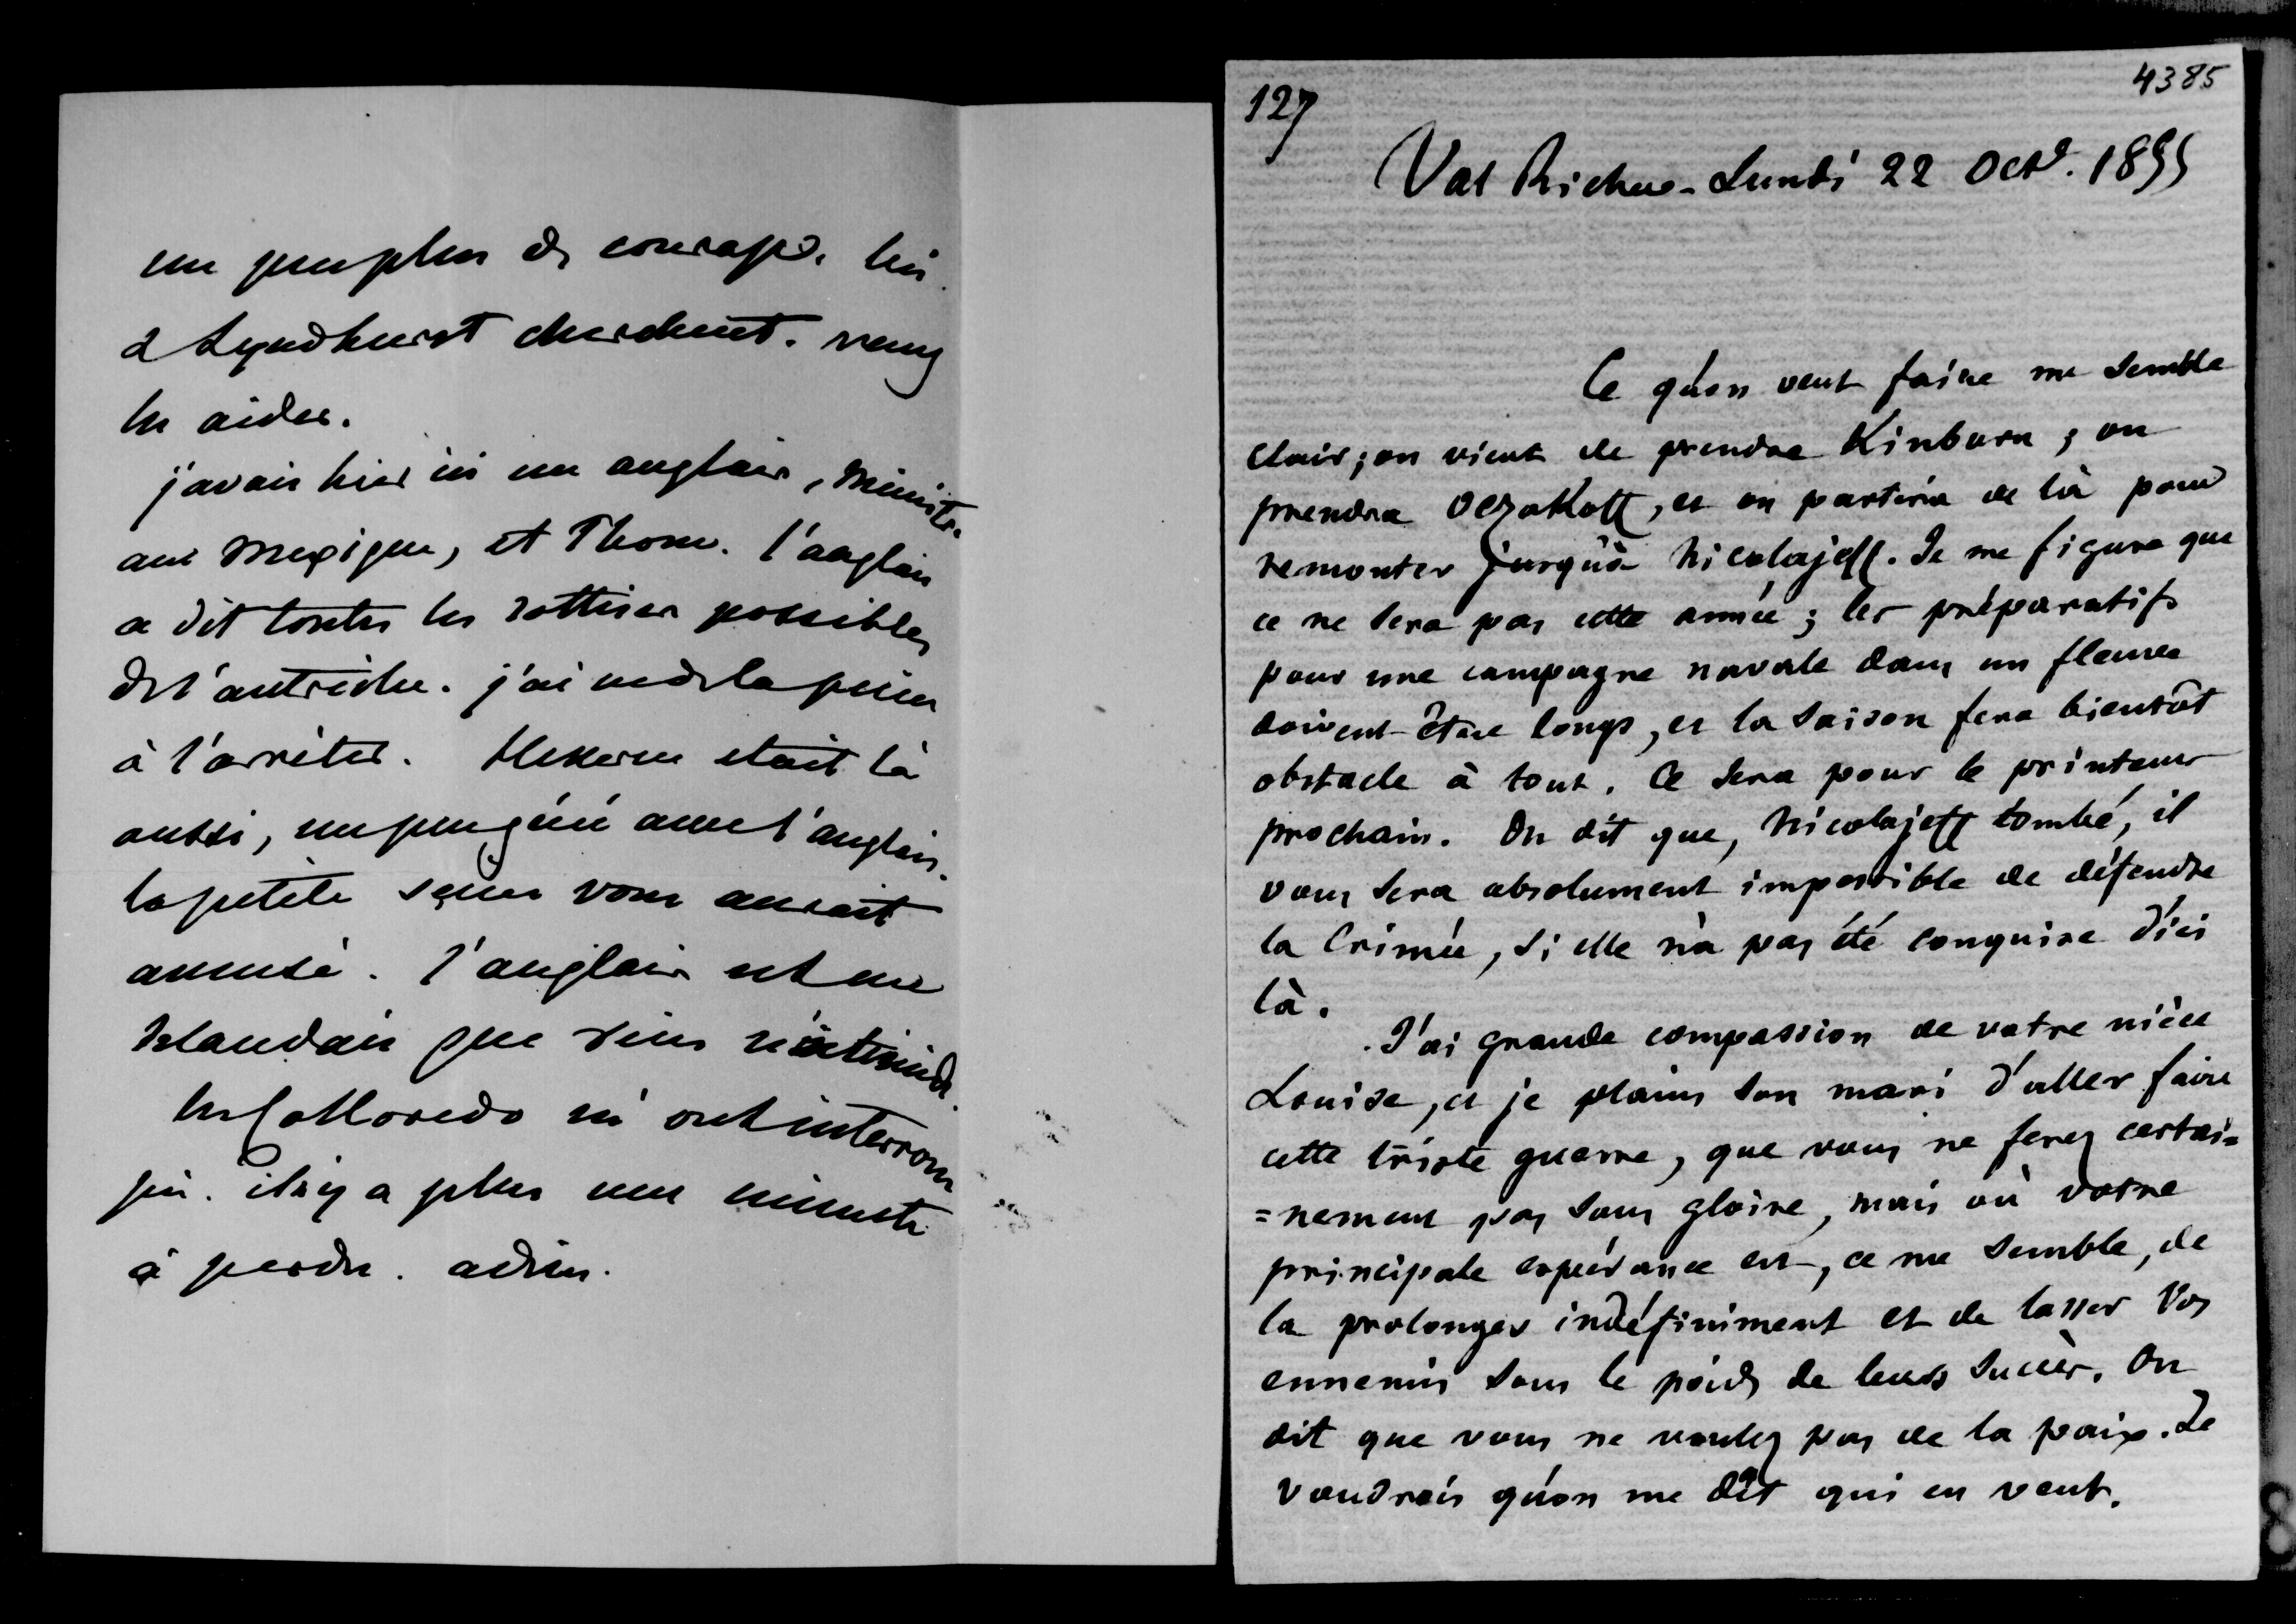 un peu plus de courage. lui
& Lyndhurst cherchent. venez
les aider.
j'avais hier ici un anglais, Ministre
au Mexique, et Thom. l'anglais
a dit toutes les sottises possibles
de l'autriche. j'ai eu de la peine
à l'arrêter. Hekern etait là
aussi, un peu géné avec l'anglais.
la petite scène vous aurait
amusé. l'anglais est un
Irlandais que rien n'
les Colloredo m'ont interrom
pu. il n'y a plus une minute
à perdre. adieu.
127
4385
Val Richer - Lundi 22 Octe. 1855
Ce qu'on veut faire me semble
clair; on vient de prendre Kinburn; on
prendra Oczakoff, et on partira de là pour
remonter jusqu'à Nicolajeff. Je me figure que
ce ne sera pas cette année; les préparatifs
pour une campagne navale dans un fleuve
doivent être longs, et la saison fera bientôt
obstacle à tout. Ce sera pour le printems
prochain. On dit que, Nicolajeff tombé, il
vous sera absolument impossible de défendre
la Crimée, si elle n'a pas été conquise d'ici
là.
J'ai grande compassion de votre nièce
Louise, et je plains son mari d'aller faire
cette triste guerre, que vous ne ferez certai=
=nement pas sans gloire, mais où votre
principale espérance est, ce me semble, de
la prolonger indéfiniment et de lasser vos
ennemis sous le poids de leurs succès. On
dit que vous ne voulez pas de la paix. Je
voudrais qu'on me dît qui en veut.